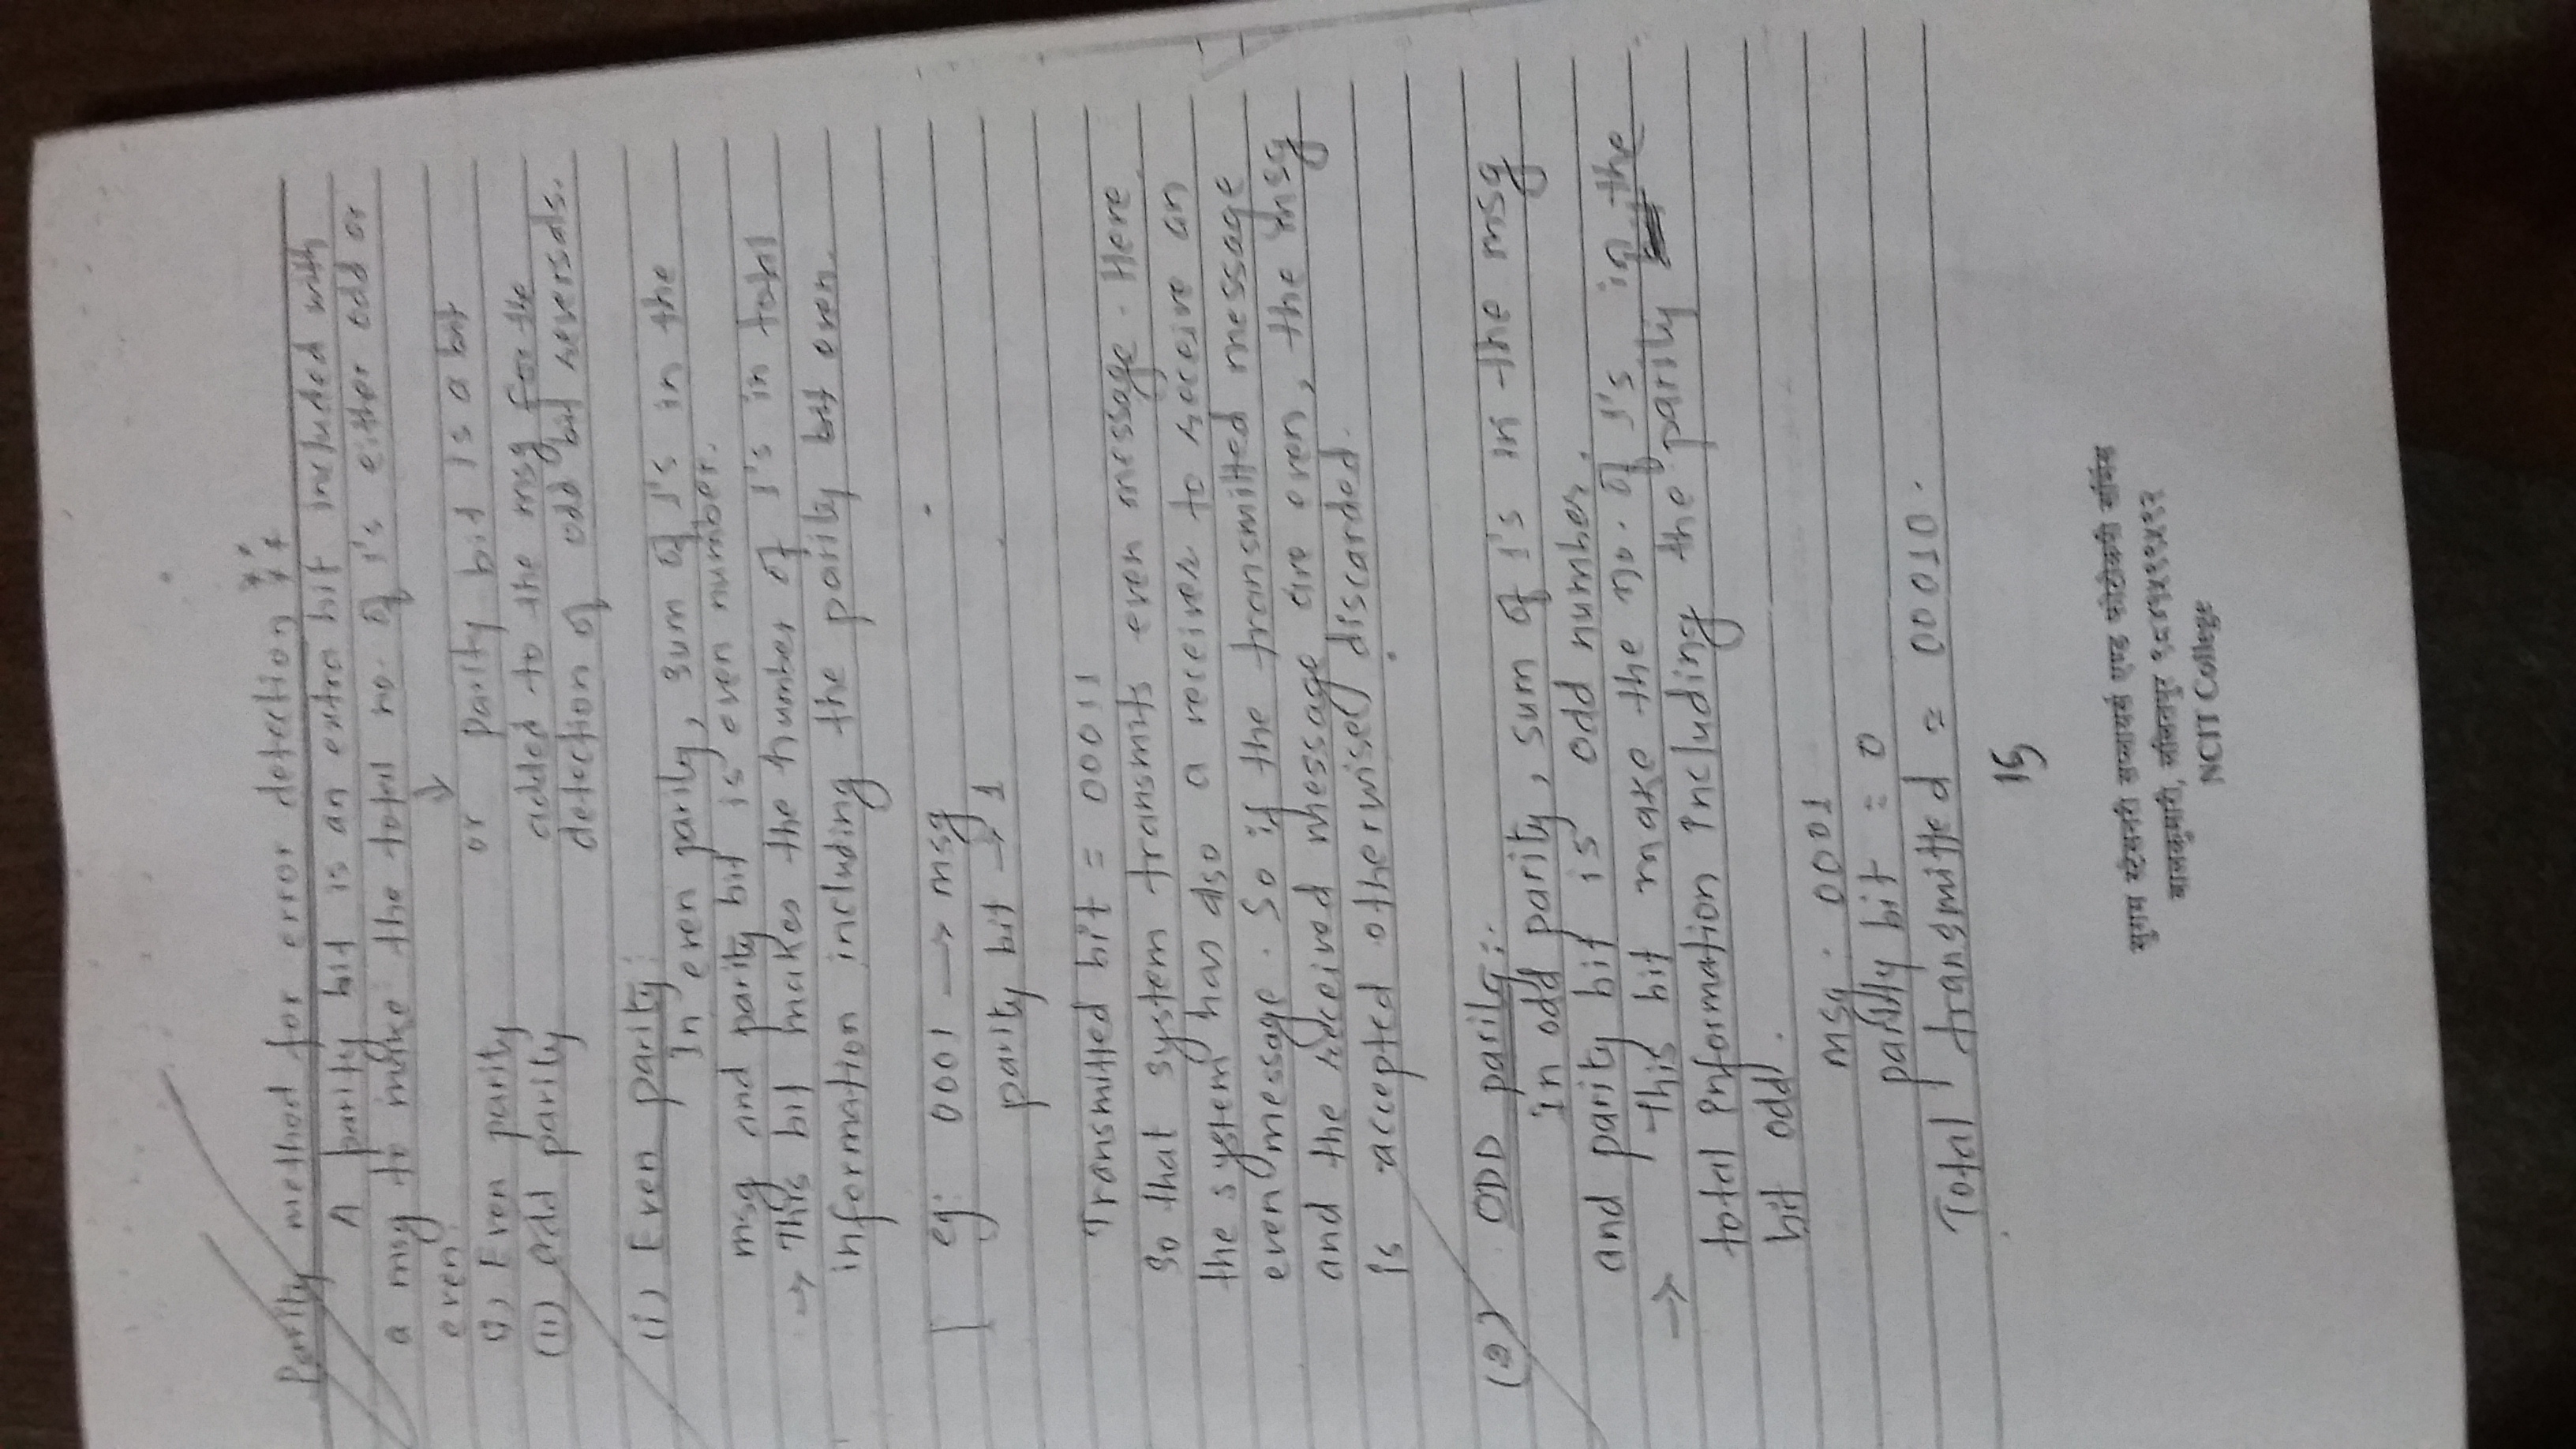 Parity method for error detection
A parity bit is an extra bit included with
a msg to make the total no. of 1's either odd or
even.
(i) Even parity
(ii) Odd parity
or parity bit is a bit
added to the msg for the
detection of odd bit reversals.
(i) Even parity:
In even parity, sum of 1's in the
msg and parity bit is even number.
→ This bit makes the number of 1's in total
information including the parity bit even.
eg: 0001 → msg
parity bit → 1
Transmitted bit = 00011
So that system transmits even message. Here
the system has also a receiver to receive an
even message. So if the transmitted message
and the received message are even, the msg
is accepted otherwise discarded.
(2) ODD parity:-
In odd parity, sum of 1's in the msg
and parity bit is odd number.
→ This bit make the no. of 1's in the
total information including the parity
bit odd.
msg : 0001
parity bit = 0
Total transmitted = 00010.
15
सुगम स्टेसनरी सप्लायर्स एण्ड फोटोकपी सर्भिस
बालकुमारी, ललितपुर ९८४१५९९५९२
NCIT College